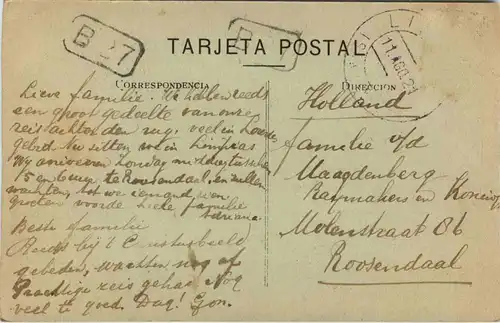 B 27
B 27
TARJETA POSTAL
LI
11 AGO 21
CORRESPONDENCIA
DIRECCION
Lieve familie. We hebben reeds
een groot gedeelte van onze
reis achter den rug, veel in Lourdes
gebed. Nu zitten we in Limpias
Wij arriveeren Zondag middag tusschen
5 en 6 uur te Roosendaal, en zullen
wachten tot we iemand zien
groeten Lieve familie
Adriana
Beste familie
Reeds bij 't Cruciusbeeld
gebeden, wachten nog of
Prachtige reis gehad. Nog
veel te goed. Dag! Gon.
Holland
familie v/d
Maagdenberg
Raymakers en
Molenstraat 86
Roosendaal